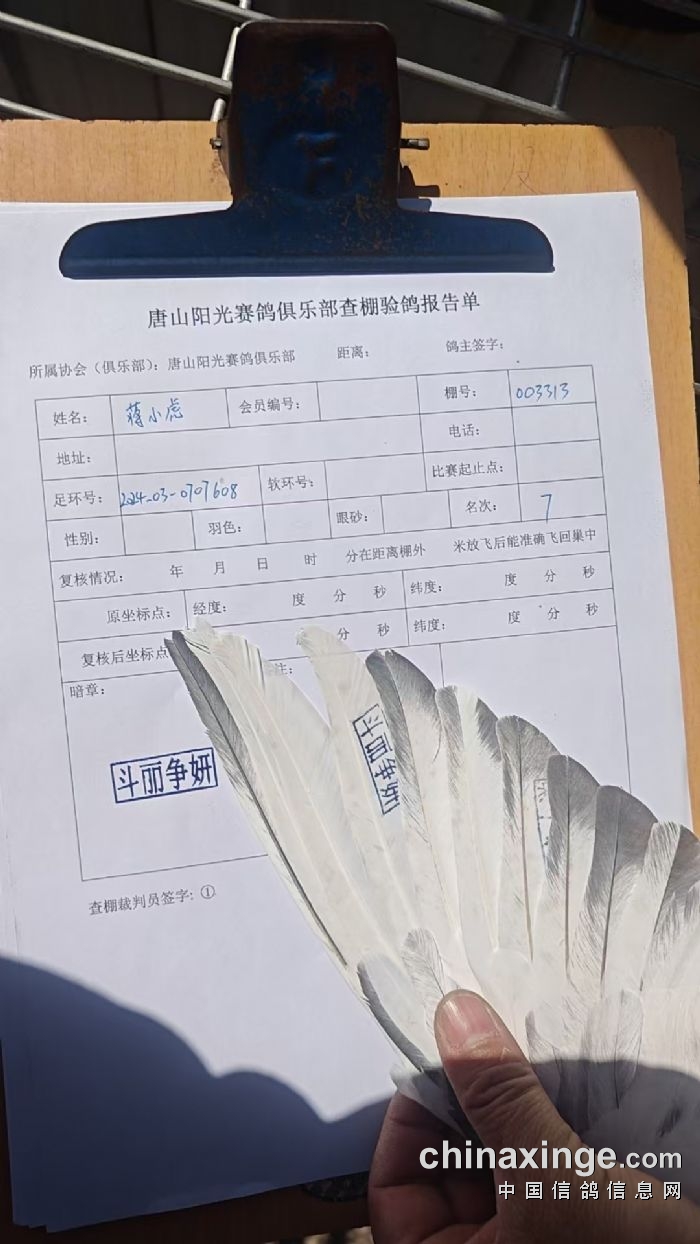 唐山阳光赛鸽俱乐部查棚验鸽报告单
所属协会（俱乐部）：唐山阳光赛鸽俱乐部 距离： 鸽主签字：
姓名： 蒋小虎 会员编号： 棚号： 003313
地址： 电话：
足环号： 2024-03-0707608 软环号： 比赛起止点：
性别： 羽色： 眼砂： 名次： 7
复核情况： 年 月 日 时 分在距离棚外 米放飞后能准确飞回巢中
原坐标点： 经度： 度 分 秒 纬度： 度 分 秒
复核后坐标点 分 秒 纬度： 度 分 秒
暗章： 注：
斗丽争妍
斗丽争妍
查棚裁判员签字：①
chinaxinge.com
中国信鸽信息网